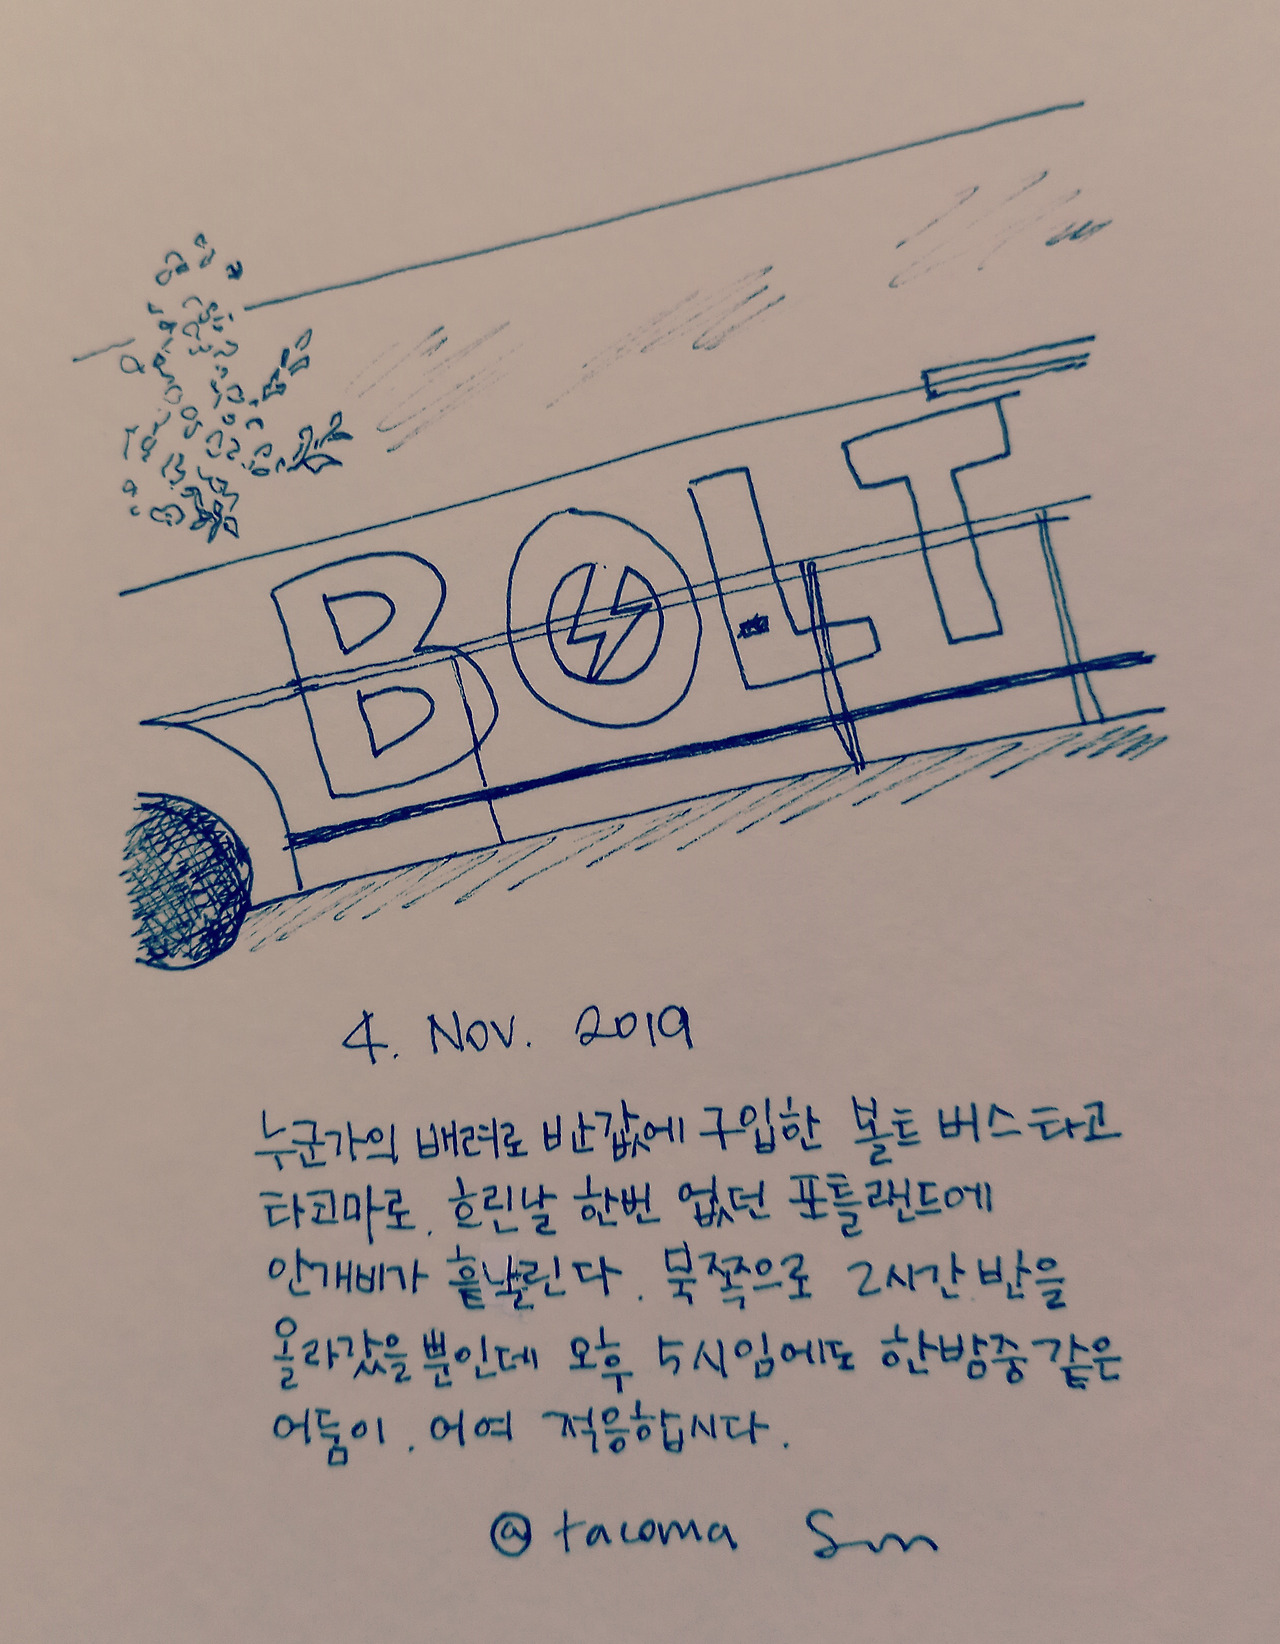 BOLT
4. Nov. 2019
누군가의 배려로 반값에 구입한 볼트 버스 타고
타코마로. 흐린날 한번 없던 포틀랜드에
안개비가 흩날린다. 북쪽으로 2시간 반을
올라갔을 뿐인데 오후 5시임에도 한밤중 같은
어둠이. 어여 적응합시다.
@tacoma